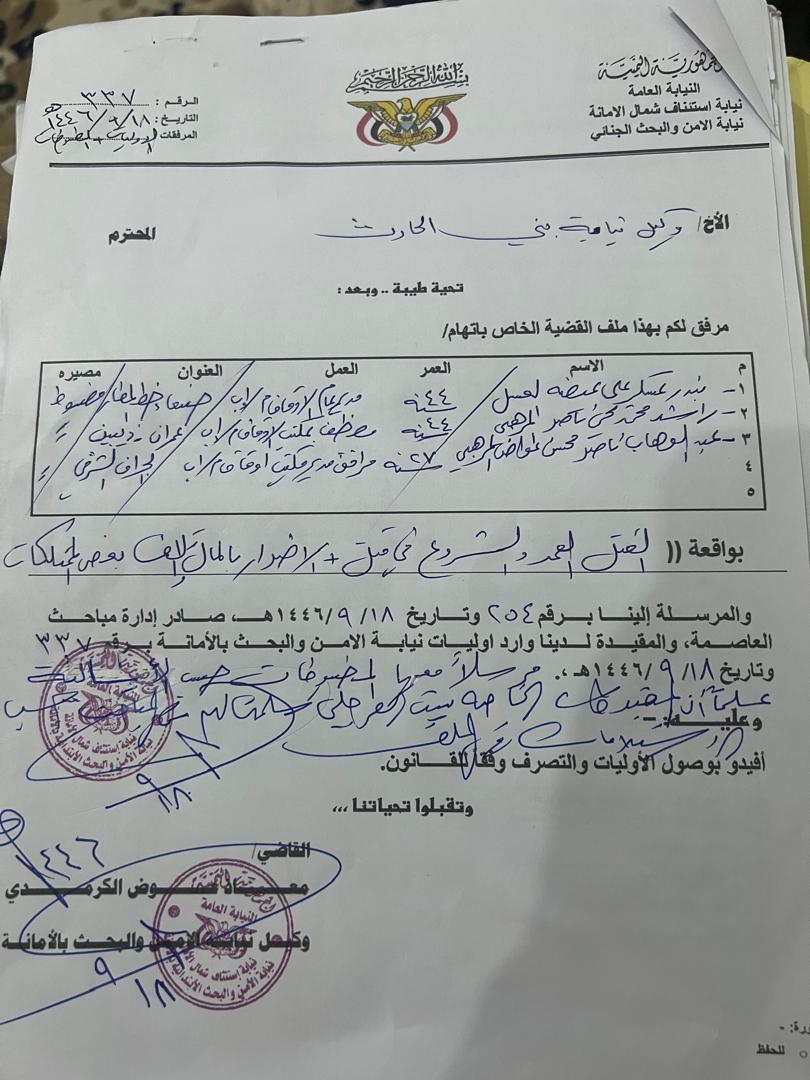 بسم الله الرحمن الرحيم
الجمهورية اليمنية
النيابة العامة
نيابة استئناف شمال الامانة
نيابة الامن والبحث الجنائي
الرقم : ٣٣٧
التاريخ : ١٨/٩/١٤٤٦هـ
المرفقات : الاوليات + المضبوطات
الأخ/ وكيل نيابة بني الحارث المحترم
تحية طيبة .. وبعد :
مرفق لكم بهذا ملف القضية الخاص باتهام/
م الاسم العمر العمل العنوان مصيره
١- عسكر علي ٤٤ سنة مدير عام الاوقاف م/إب صنعاء مضبوط
٢- راشد محمد محسن ناصر المرهبي ٤٤ سنة موظف بمكتب الاوقاف م/إب عمران ذيبين "
٣- عبد الوهاب ناصر محسن المرهبي ٢٧ سنة مرافق مدير مكتب اوقاف م/إب الجراف الشرقي "
٤
٥
بواقعة (( القتل العمد والشروع في قتل + الاضرار بالمال واتلاف بعض الممتلكات
والمرسلة إلينا برقم ٢٥٤ وتاريخ ١٨/٩/١٤٤٦هـ، صادر إدارة مباحث
العاصمة، والمقيدة لدينا وارد اوليات نيابة الامن والبحث بالأمانة برقم ٣٣٧
وتاريخ ١٨/٩/١٤٤٦هـ،. مرسلاً معها المضبوطات حسب
علماً أن الخاصة ببيت
وعليه: -
الملف
أفيدو بوصول الأوليات والتصرف وفقاً للقانون.
وتقبلوا تحياتنا ,,,
القاضي/
عوض الكرمدي
وكيل نيابة الامن والبحث بالأمانة
١٨/٩/١٤٤٦
النيابة العامة
نيابة إستئناف شمال الأمانة
نيابة الأمن والبحث الابتدائية
النيابة العامة
نيابة إستئناف شمال الأمانة
نيابة الأمن والبحث الابتدائية
للحفظ